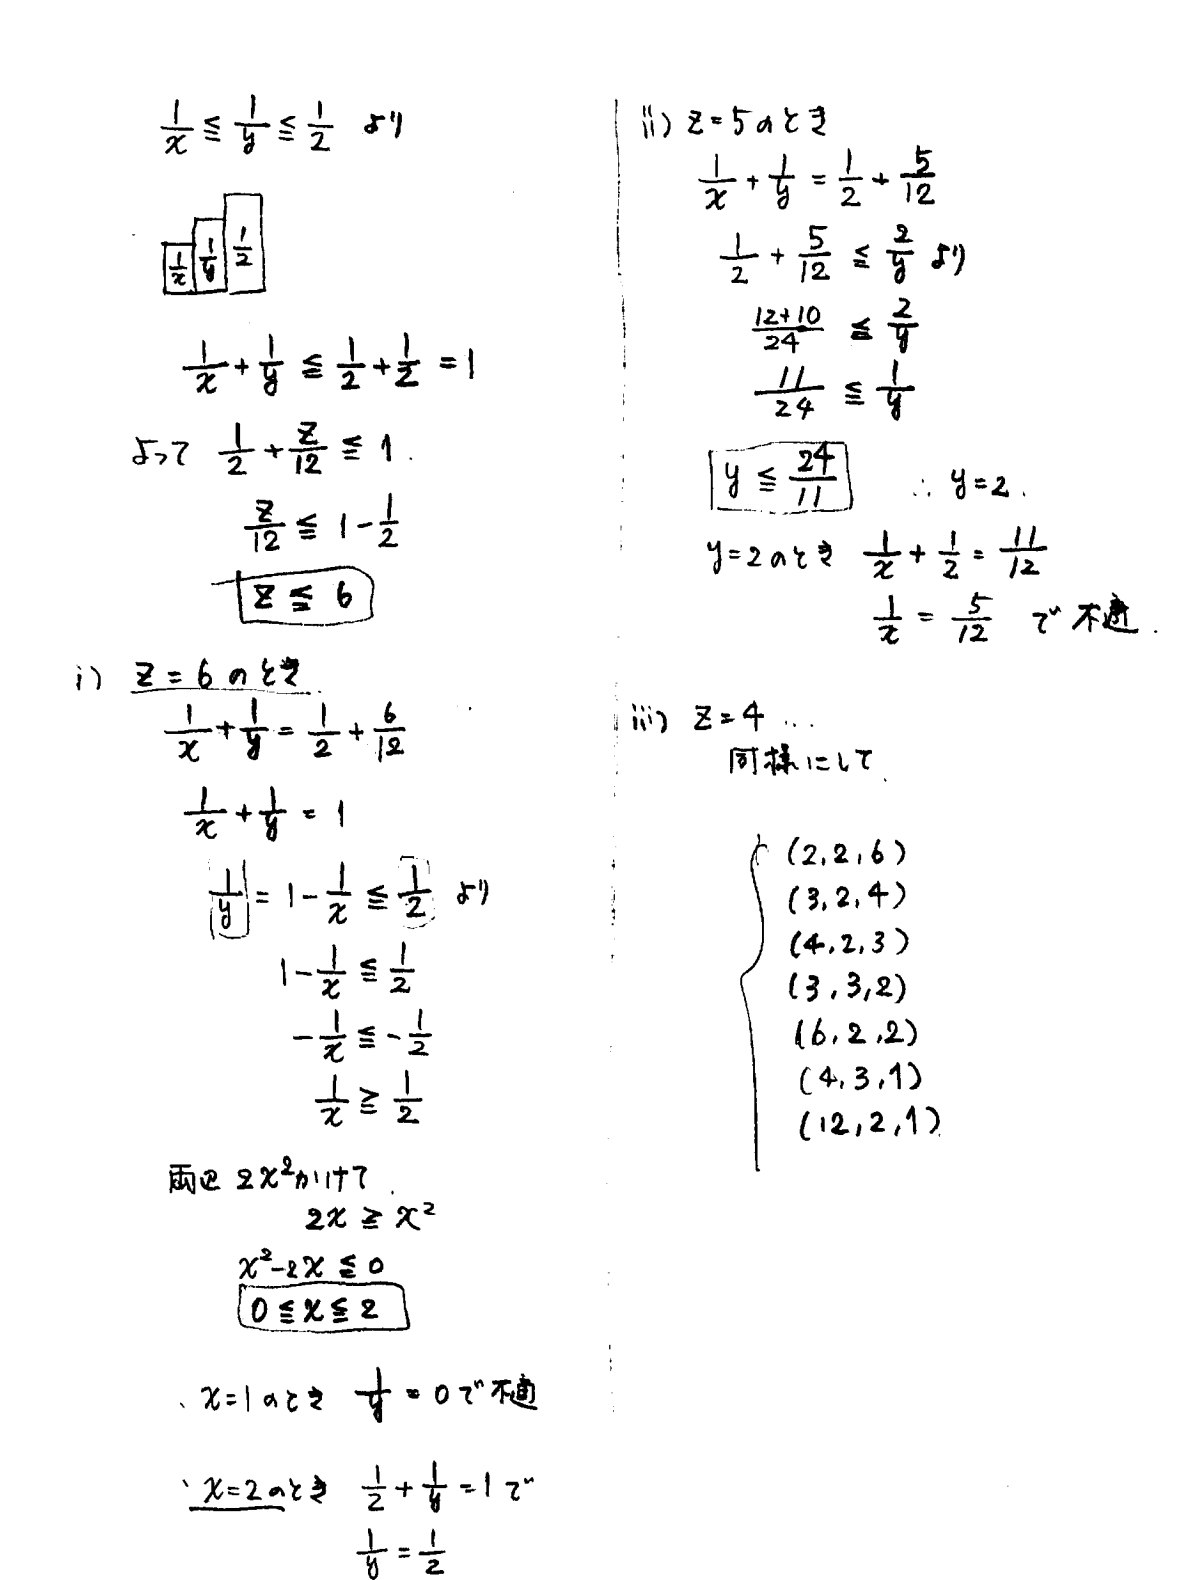 1/x ≦ 1/y ≦ 1/2 より
1/x 1/y 1/2
1/x + 1/y ≦ 1/2 + 1/2 = 1
よって 1/2 + z/12 ≦ 1.
z/12 ≦ 1 - 1/2
z ≦ 6
i) z = 6 のとき
1/x + 1/y = 1/2 + 6/12
1/x + 1/y = 1
1/y = 1 - 1/x ≦ 1/2 より
1 - 1/x ≦ 1/2
- 1/x ≦ - 1/2
1/x ≧ 1/2
両辺 2x² かけて
2x ≧ x²
x² - 2x ≦ 0
0 ≦ x ≦ 2
、x = 1 のとき 1/y = 0 で不適
、x = 2 のとき 1/2 + 1/y = 1 で
1/y = 1/2
ii) z = 5 のとき
1/x + 1/y = 1/2 + 5/12
1/2 + 5/12 ≦ 2/y より
12+10/24 ≦ 2/y
11/24 ≦ 1/y
y ≦ 24/11 ∴ y = 2.
y = 2 のとき 1/x + 1/2 = 11/12
1/x = 5/12 で 不適.
iii) z = 4 ...
同様にして
(2, 2, 6)
(3, 2, 4)
(4, 2, 3)
(3, 3, 2)
(6, 2, 2)
(4, 3, 1)
(12, 2, 1)